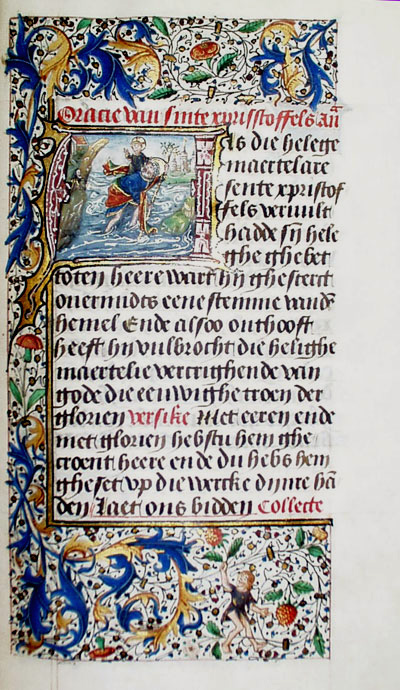 Oracie van sinte xprisstoffels añ
Als die heleghe
maertelare
sente xpristof
fels vervult
hadde sÿ hele
ghe ghebet
toten heere wart hÿ ghesterct
overmidts eene stemme vand̄
hemel Ende alsoo onthooft
heeft hÿ vulbrocht die helighe
maertelie vercrighende van
gode die eewighe croen der
glorien versike Met eeren ende
met glorien hebstu hem ghe
croent heere ende du hebs hem
ghe set up die wercke dijnre hā
den Laet ons bidden Collecte